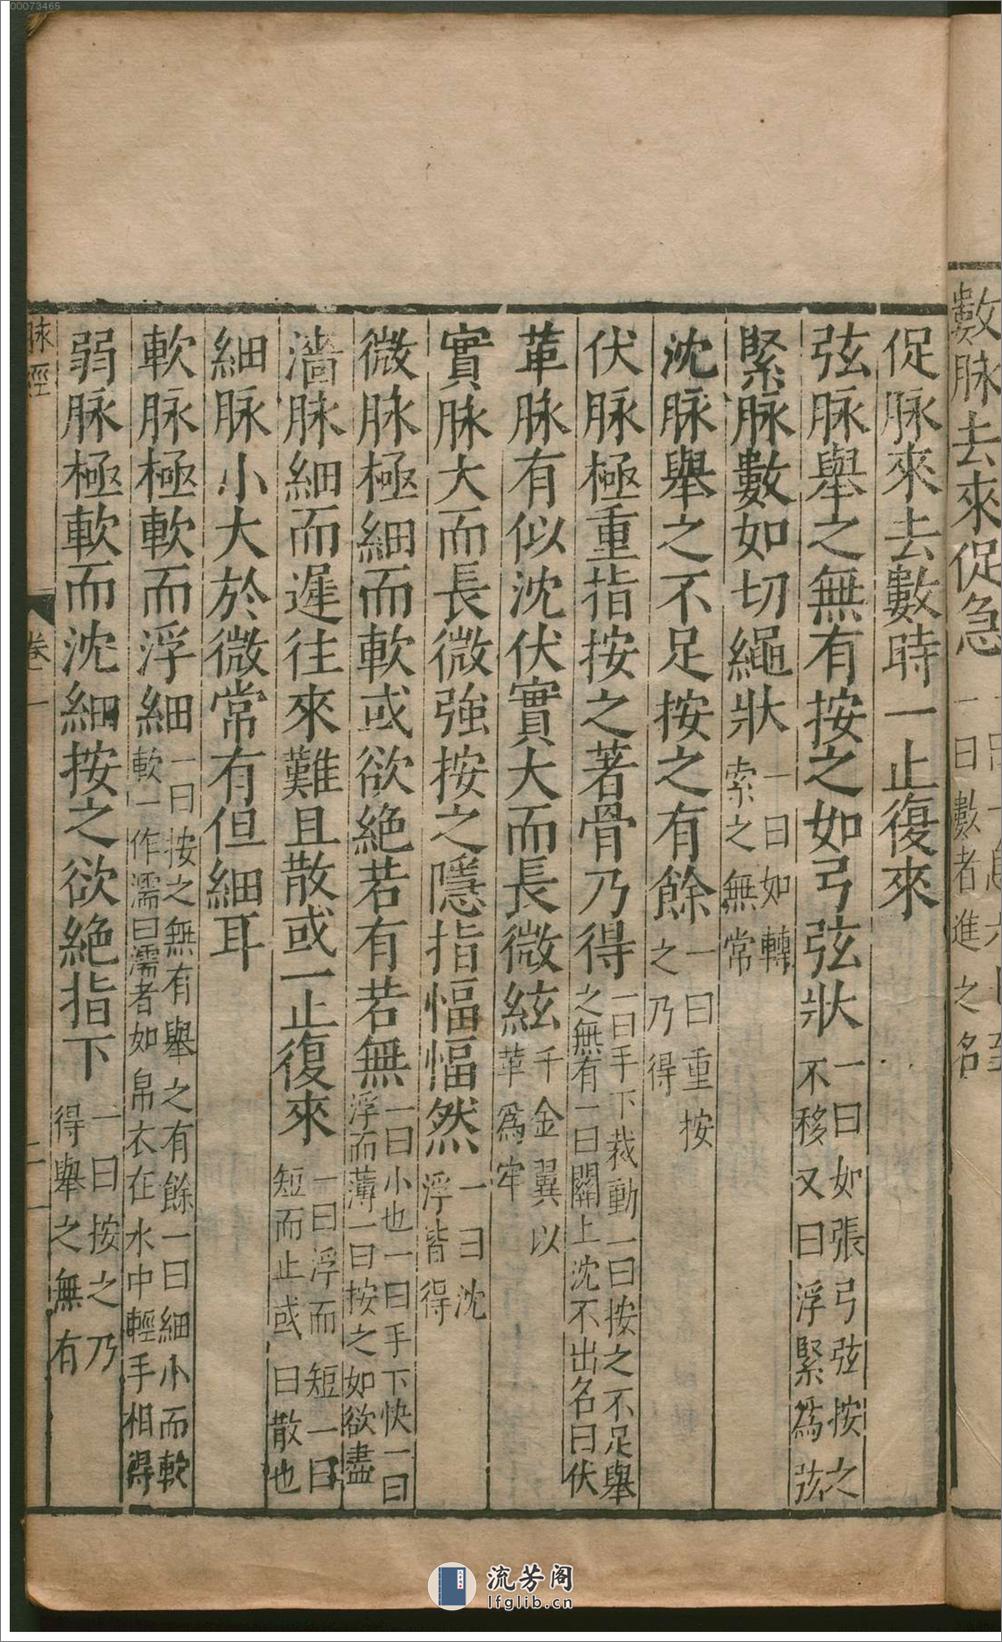 00073465
數脉去來促急
一曰數者進之名
促脉來去數時一止復來
弦脉舉之無有按之如弓弦狀 一曰如張弓弦按之不移又曰浮緊為弦
緊脉數如切繩狀 一曰如轉索之無常
沈脉舉之不足按之有餘 一曰重按之乃得
伏脉極重指按之著骨乃得 一曰手下裁動一曰按之不足舉之無有一曰關上沈不出名曰伏
革脉有似沈伏實大而長微絃 千金翼以革為牢
實脉大而長微強按之隱指愊愊然 一曰沈浮皆得
微脉極細而軟或欲絕若有若無 一曰小也一曰手下快一曰浮而薄一曰按之如欲盡
濇脉細而遲往來難且散或一止復來 一曰浮而短一曰短而止或曰散也
細脉小大於微常有但細耳
軟脉極軟而浮細 一曰按之無有舉之有餘一曰細小而軟軟一作濡曰濡者如帛衣在水中輕手相得
弱脉極軟而沈細按之欲絕指下 一曰按之乃得舉之無有
脉經
卷一
十一
流芳阁
lfglib.cn